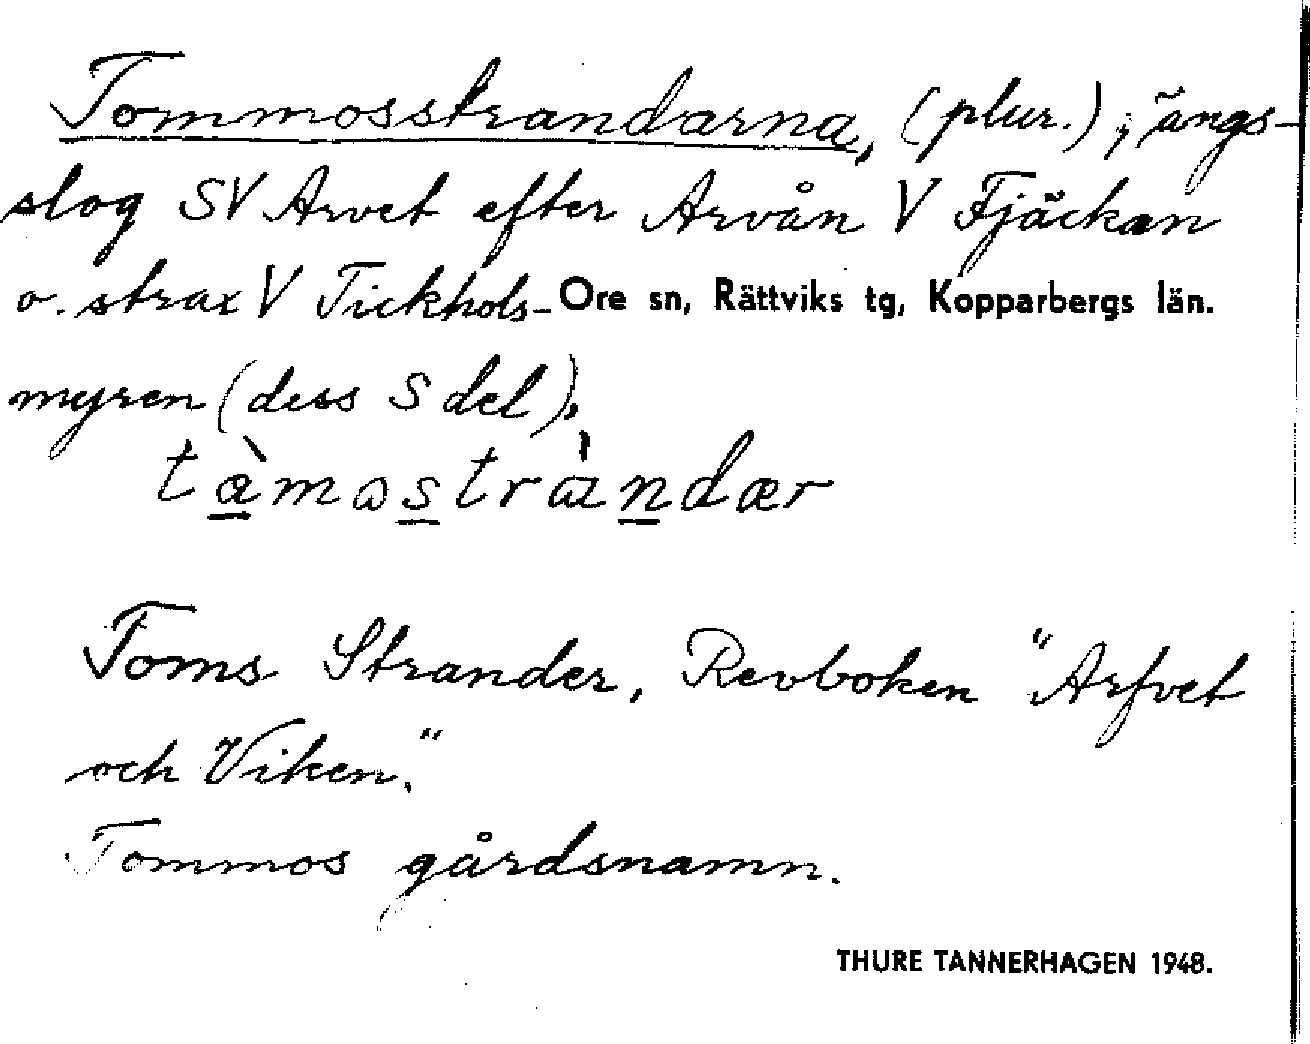 Tommosstrandarna, (plur.); ängs-
slog SV Arvet efter Arvån V Fjäckan
o. strax V Tickhols- Ore sn, Rättviks tg, Kopparbergs län.
myren (dess S del).
tàmostràndær
Toms Strander, Revboken "Arfvet
och Viken."
Tommos gårdsnamn.
THURE TANNERHAGEN 1948.